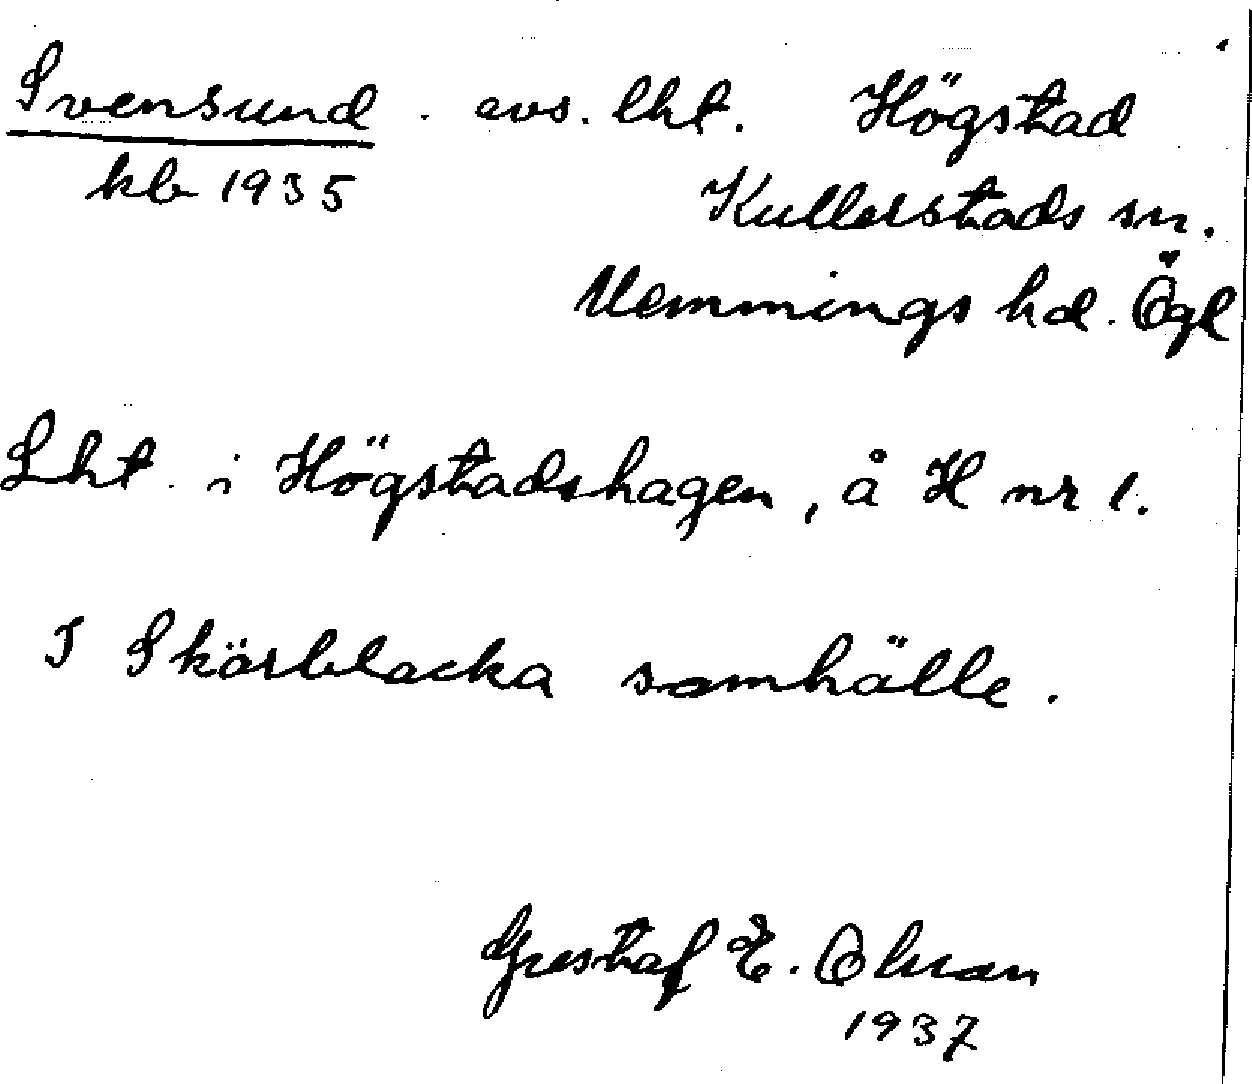 Svensund . avs. lht. Högstad
kb 1935 Kullerstads sn.
Memmings hd. Ögl
Lht. i Högstadshagen, å H nr 1.
I Skärblacka samhälle.
Gustaf E. Olson
1937